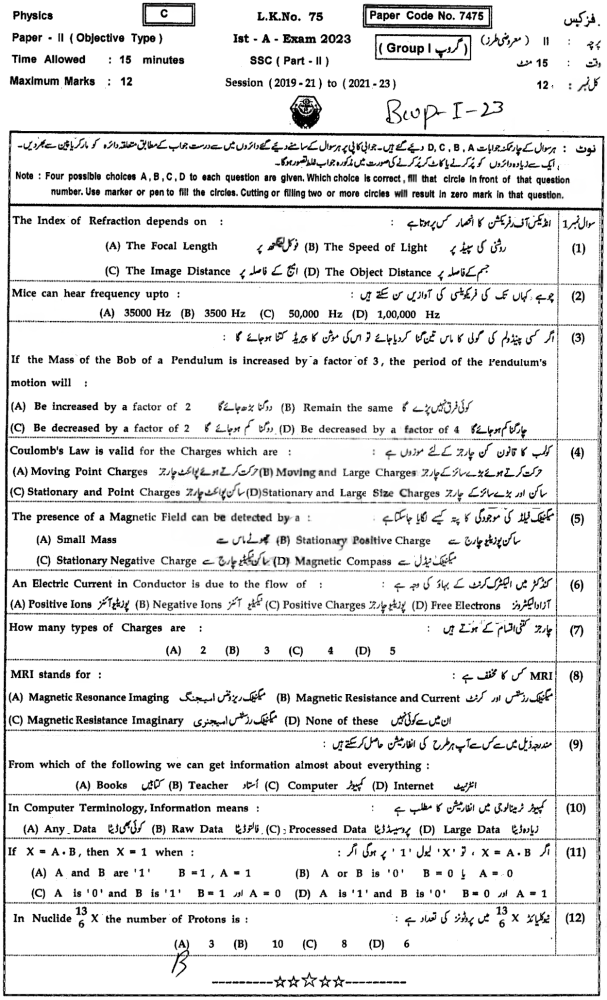 Physics C L.K.No. 75 Paper Code No. 7475 فزکس
Paper - II (Objective Type) Ist - A - Exam 2023 (Group I گروپ) پرچہ : II (معروضی طرز)
Time Allowed : 15 minutes SSC (Part - II) وقت : 15 منٹ
Maximum Marks : 12 Session (2019 - 21) to (2021 - 23) کل نمبر : 12
Bwp-I-23
نوٹ : ہر سوال کے چار ممکنہ جوابات D, C, B, A دیئے گئے ہیں۔ جوابی کاپی پر ہر سوال کے سامنے دیئے گئے دائروں میں سے درست جواب کے مطابق متعلقہ دائرہ کو مارکر یا پین سے بھر دیں۔
ایک سے زیادہ دائروں کو پُر کرنے یا کاٹ کر پُر کرنے کی صورت میں مذکورہ جواب غلط تصور ہوگا۔
Note : Four possible choices A, B, C, D to each question are given. Which choice is correct, fill that circle in front of that question
number. Use marker or pen to fill the circles. Cutting or filling two or more circles will result in zero mark in that question.
The Index of Refraction depends on : انڈیکس آف رفریکشن کا انحصار کس پر ہوتا ہے : سوال نمبر 1
(A) The Focal Length فوکل لینگتھ پر (B) The Speed of Light روشنی کی سپیڈ پر (1)
(C) The Image Distance امیج کے فاصلہ پر (D) The Object Distance جسم کے فاصلہ پر
Mice can hear frequency upto : چوہے کہاں تک کی فریکوئنسی کی آوازیں سن سکتے ہیں : (2)
(A) 35000 Hz (B) 3500 Hz (C) 50,000 Hz (D) 1,00,000 Hz
اگر کسی پینڈولم کی گولی کا ماس تین گنا کر دیا جائے تو اس کی موشن کا پیریڈ کتنا ہو جائے گا : (3)
If the Mass of the Bob of a Pendulum is increased by a factor of 3, the period of the Pendulum's
motion will :
(A) Be increased by a factor of 2 دوگنا بڑھ جائے گا (B) Remain the same کوئی فرق نہیں پڑے گا
(C) Be decreased by a factor of 2 دوگنا کم ہو جائے گا (D) Be decreased by a factor of 4 چار گنا کم ہو جائے گا
Coulomb's Law is valid for the Charges which are : کولمب کا قانون کن چارجز کے لئے موزوں ہے : (4)
(A) Moving Point Charges حرکت کرتے ہوئے پوائنٹ چارجز (B) Moving and Large Charges حرکت کرتے ہوئے بڑے سائز کے چارجز
(C) Stationary and Point Charges ساکن پوائنٹ چارجز (D) Stationary and Large Size Charges ساکن اور بڑے سائز کے چارجز
The presence of a Magnetic Field can be detected by a : میگنیٹک فیلڈ کی موجودگی کا پتہ کیسے لگایا جاسکتا ہے : (5)
(A) Small Mass چھوٹے ماس سے (B) Stationary Positive Charge ساکن پوزیٹو چارج سے
(C) Stationary Negative Charge ساکن نیگیٹو چارج سے (D) Magnetic Compass میگنیٹک نیڈل سے
An Electric Current in Conductor is due to the flow of : کنڈکٹر میں الیکٹرک کرنٹ کے بہاؤ کی وجہ ہے : (6)
(A) Positive Ions پوزیٹو آئنز (B) Negative Ions نیگیٹو آئنز (C) Positive Charges پوزیٹو چارجز (D) Free Electrons آزاد الیکٹرونز
How many types of Charges are : چارجز کتنی اقسام کے ہوتے ہیں : (7)
(A) 2 (B) 3 (C) 4 (D) 5
MRI stands for : MRI کس کا مخفف ہے : (8)
(A) Magnetic Resonance Imaging میگنیٹک ریزوننس امیجنگ (B) Magnetic Resistance and Current میگنیٹک رزسٹنس اور کرنٹ
(C) Magnetic Resistance Imaginary میگنیٹک رزسٹنس امیجنری (D) None of these ان میں سے کوئی نہیں
مندرجہ ذیل میں سے کس سے آپ ہر طرح کی انفارمیشن حاصل کر سکتے ہیں : (9)
From which of the following we can get information almost about everything :
(A) Books کتابیں (B) Teacher استاد (C) Computer کمپیوٹر (D) Internet انٹرنیٹ
In Computer Terminology, Information means : کمپیوٹر ٹرمینالوجی میں انفارمیشن کا مطلب ہے : (10)
(A) Any Data کوئی بھی ڈیٹا (B) Raw Data فالتو ڈیٹا (C) Processed Data پروسیسڈ ڈیٹا (D) Large Data زیادہ ڈیٹا
If X = A . B, then X = 1 when : اگر X = A . B ، تو 'X' لیول '1' پر ہوگی اگر : (11)
(A) A and B are '1' B = 1 , A = 1 (B) A or B is '0' B = 0 یا A = 0
(C) A is '0' and B is '1' B = 1 اور A = 0 (D) A is '1' and B is '0' B = 0 اور A = 1
In Nuclide 13 6 X the number of Protons is : نیوکلائیڈ 13 6 X میں پروٹونز کی تعداد ہے : (12)
(A) 3 (B) 10 (C) 8 (D) 6
B